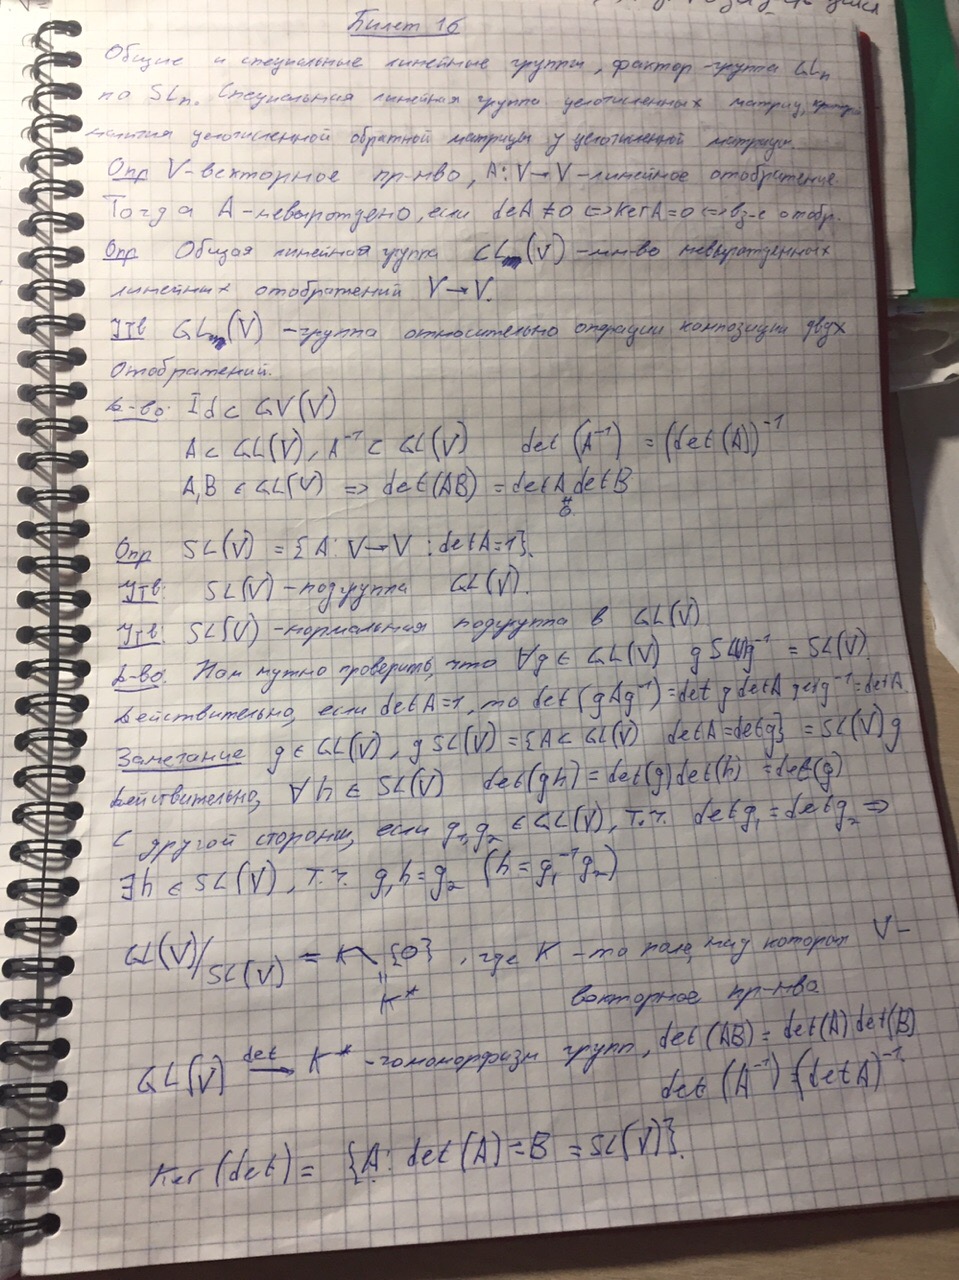 Билет 16
Общие и специальные линейные группы, фактор-группа GLn
по SLn. Специальная линейная группа целочисленных матриц,
наличия целочисленной обратной матрицы у целочисленной матрицы.
Опр V-векторное пр-нво, A: V→V-линейное отображение.
Тогда A-невырождено, если deA ≠0 ⇔ KerA=0 ⇔ вз-е отобр.
Опр Общая линейная группа GL(V) -мн-во невырожденных
линейных отображений V→V.
Утв GL(V) -группа относительно операции композиции двух
отображений.
Д-во: Id ∈ GV(V)
A ∈ GL(V), A⁻¹ ∈ GL(V) det (A⁻¹) = (det(A))⁻¹
A,B ∈ GL(V) ⇒ det(AB) = detA detB
≠
0
Опр SL(V) = {A: V→V : detA=1}.
Утв: SL(V) -подгруппа GL(V).
Утв: SL(V) -нормальная подгруппа в GL(V)
Д-во: Нам нужно проверить, что ∀g ∈ GL(V) g SL(V)g⁻¹ = SL(V).
Действительно, если detA=1, то det(gAg⁻¹)=det g detA detg⁻¹=detA
Замечание g ∈ GL(V), g SL(V) = {A ∈ GL(V) detA=detg} = SL(V)g
Действительно, ∀ h ∈ SL(V) det(gh) = det(g)det(h) =det(g)
С другой стороны, если g₁,g₂ ∈ GL(V), т.ч. detg₁=detg₂ ⇒
∃h ∈ SL(V), т.ч. g₁h=g₂ (h=g₁⁻¹g₂)
GL(V)/SL(V) = K∖{0}, где K -то поле, над которым V-
"
K*
векторное пр-нво.
GL(V) det→ K* -гомоморфизм групп, det(AB) = det(A)det(B)
det (A⁻¹)=(detA)⁻¹.
Ker(det) = {A: det(A)=B =SL(V)}.